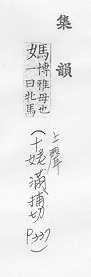 集韻
媽博雅母也一曰牝馬
(上聲十姥滿補切P337)